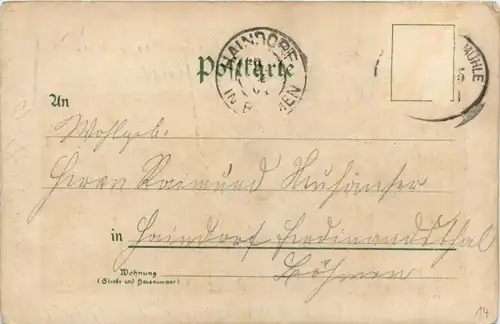 HAINDORF
IN BÖHMEN
MÜHLE
Postkarte
An
Wohlgeb.
Herrn Raimund Neuhäuser
in Haindorf Ferdinandsthal
Böhmen
Wohnung
(Straße und Hausnummer)
14